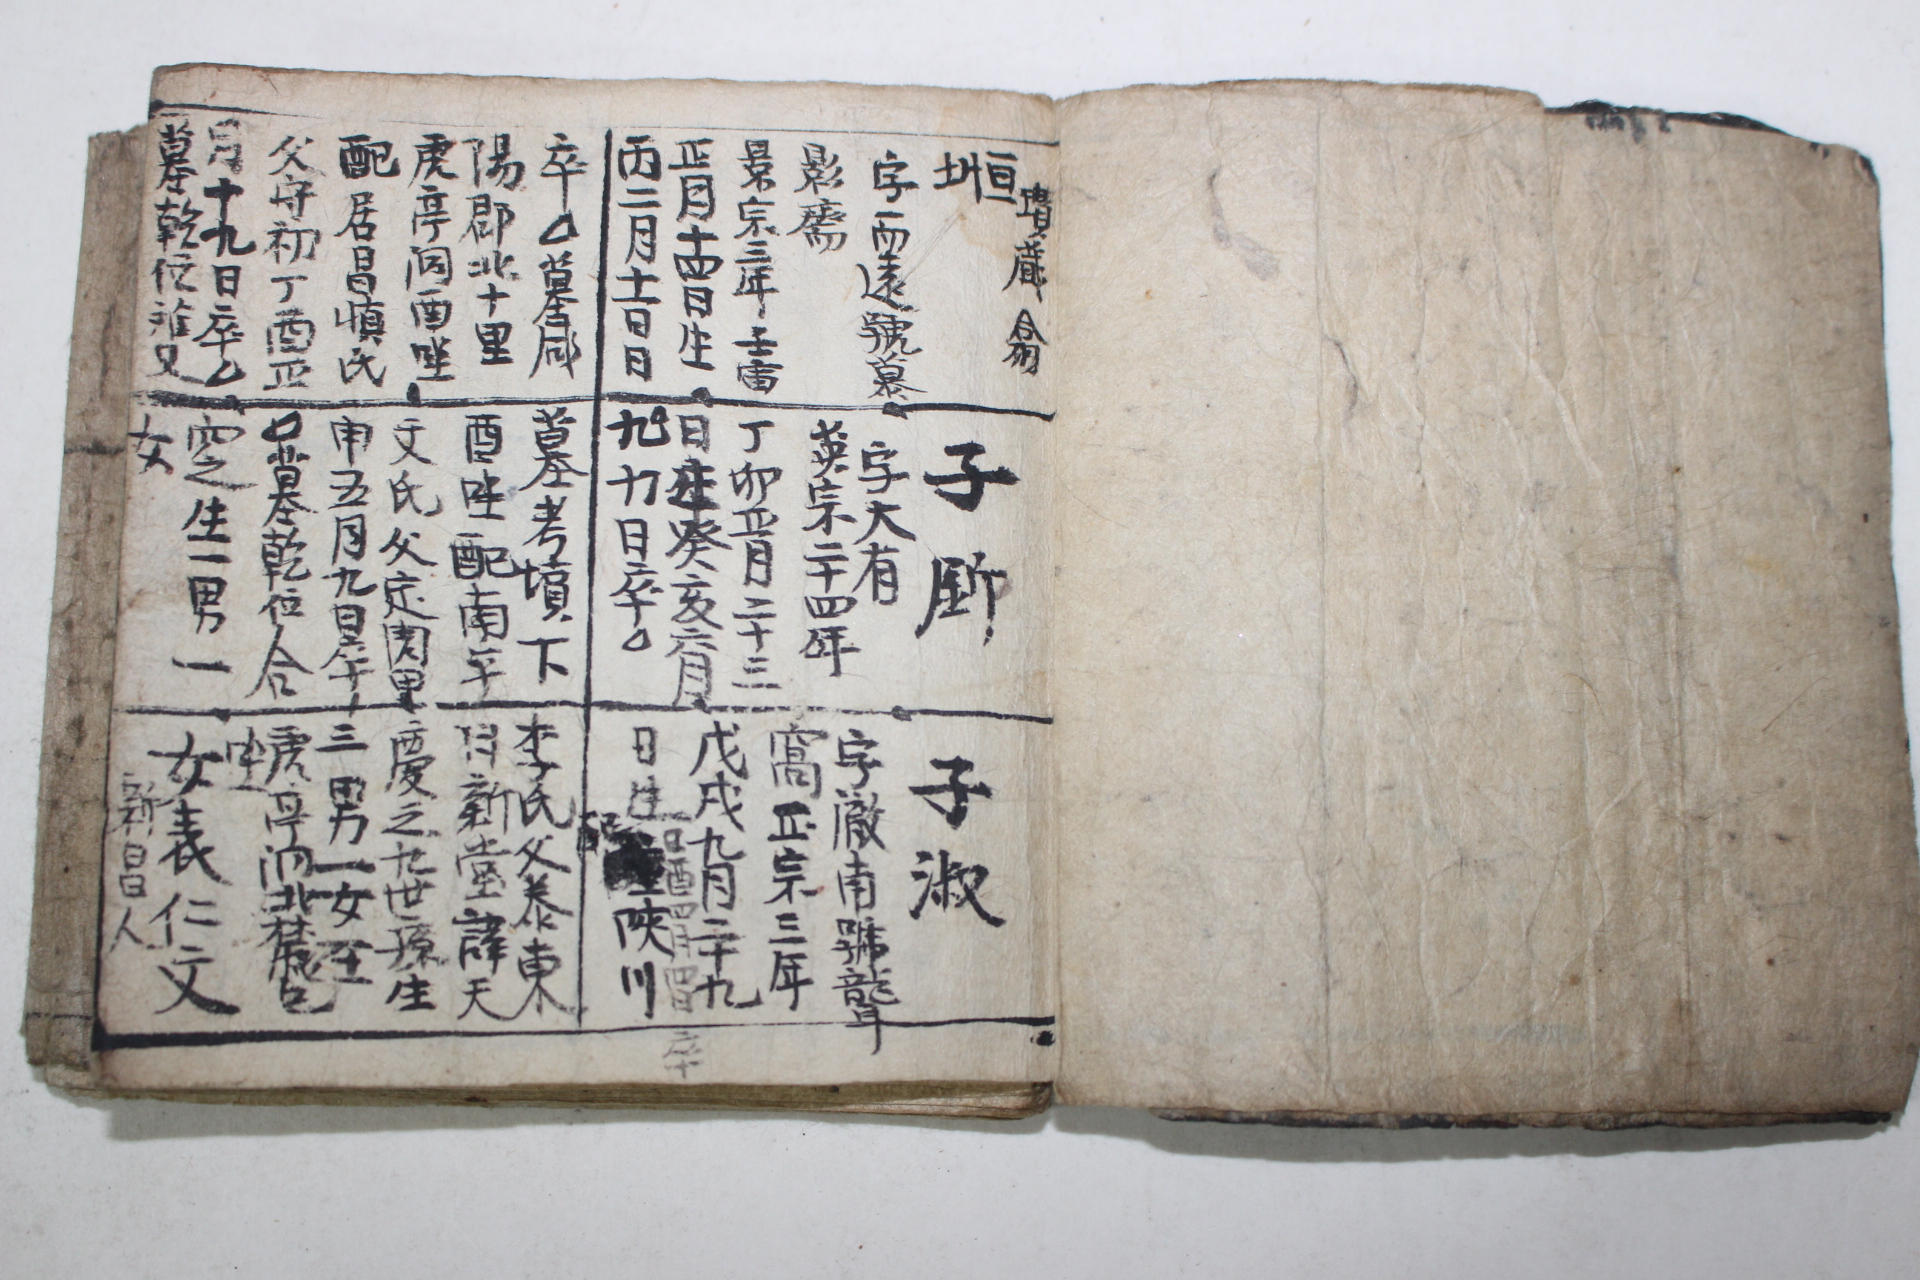 恒
字而遠號慕
影齋
景宗三年壬寅
正月十四日生
丙二月十二日日
卒墓咸
陽郡北十里
虎亭洞酉坐
配居昌愼氏
父守初丁酉正
月十九日卒
墓乾位雅又
子
字大有
英宗二十四年
丁卯正月二十三
日生癸亥六月
九十日卒
墓考墳下
酉坐配南平
文氏父定周里
申五月九日卒
墓乾位合
窆之生一男一
女
子淑
字嚴南號聾
窩正宗三年
戊戌九月二十九
日生
酉四月四日卒
配陜川
李氏父泰東
新堂諱天
慶之九世孫生
三男一女
虎亭洞北麓
坐
女義仁文
新昌人